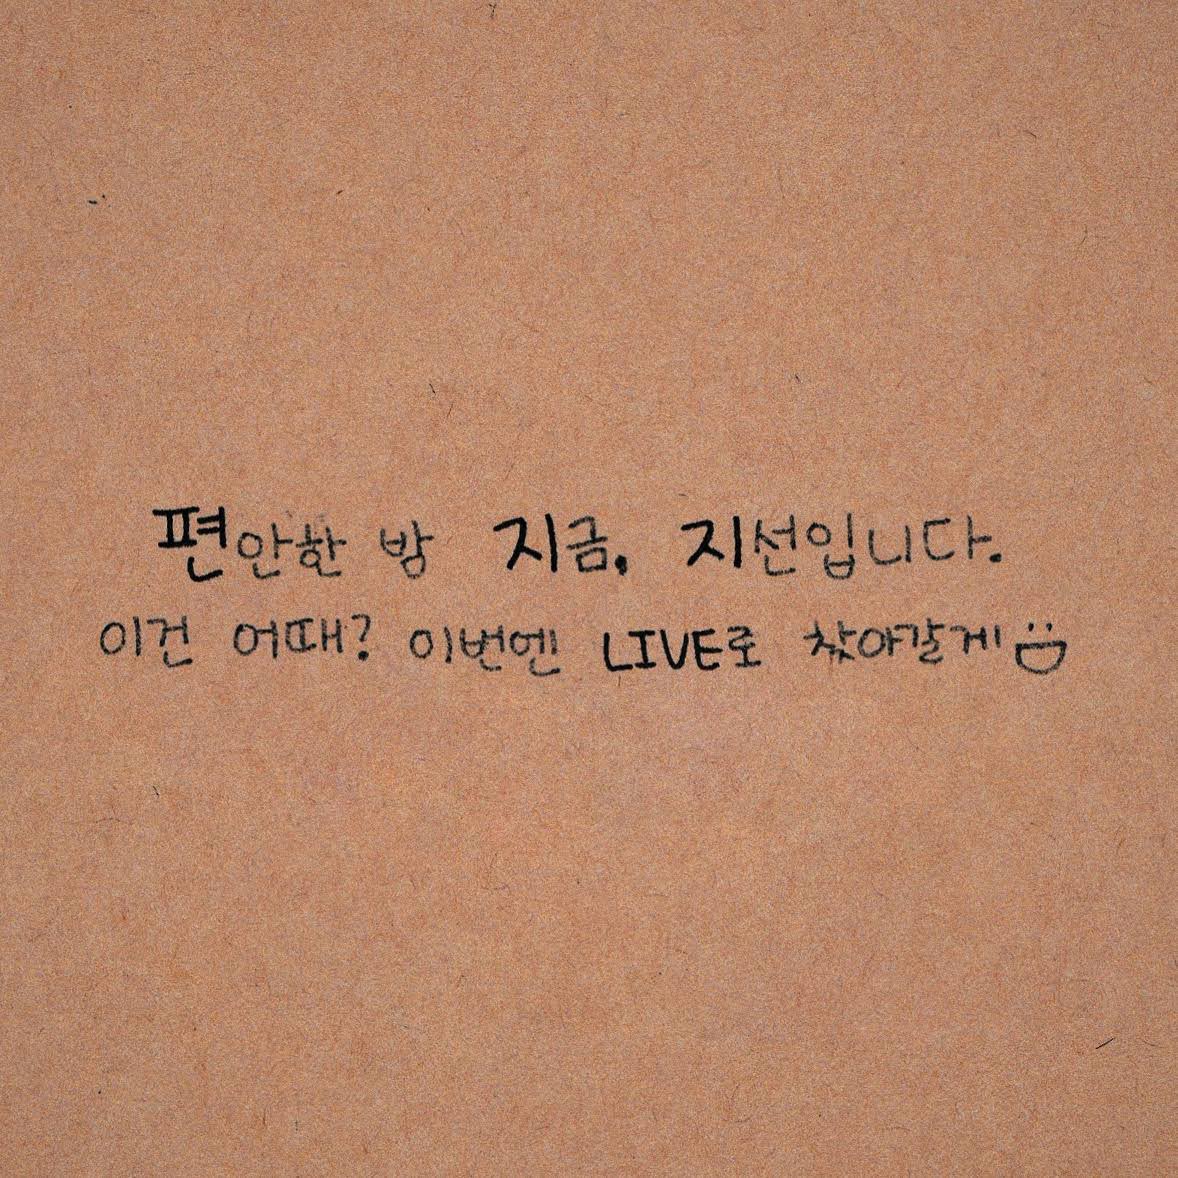 편안한 방 지금, 지선입니다.
이건 어때? 이번엔 LIVE로 찾아갈게